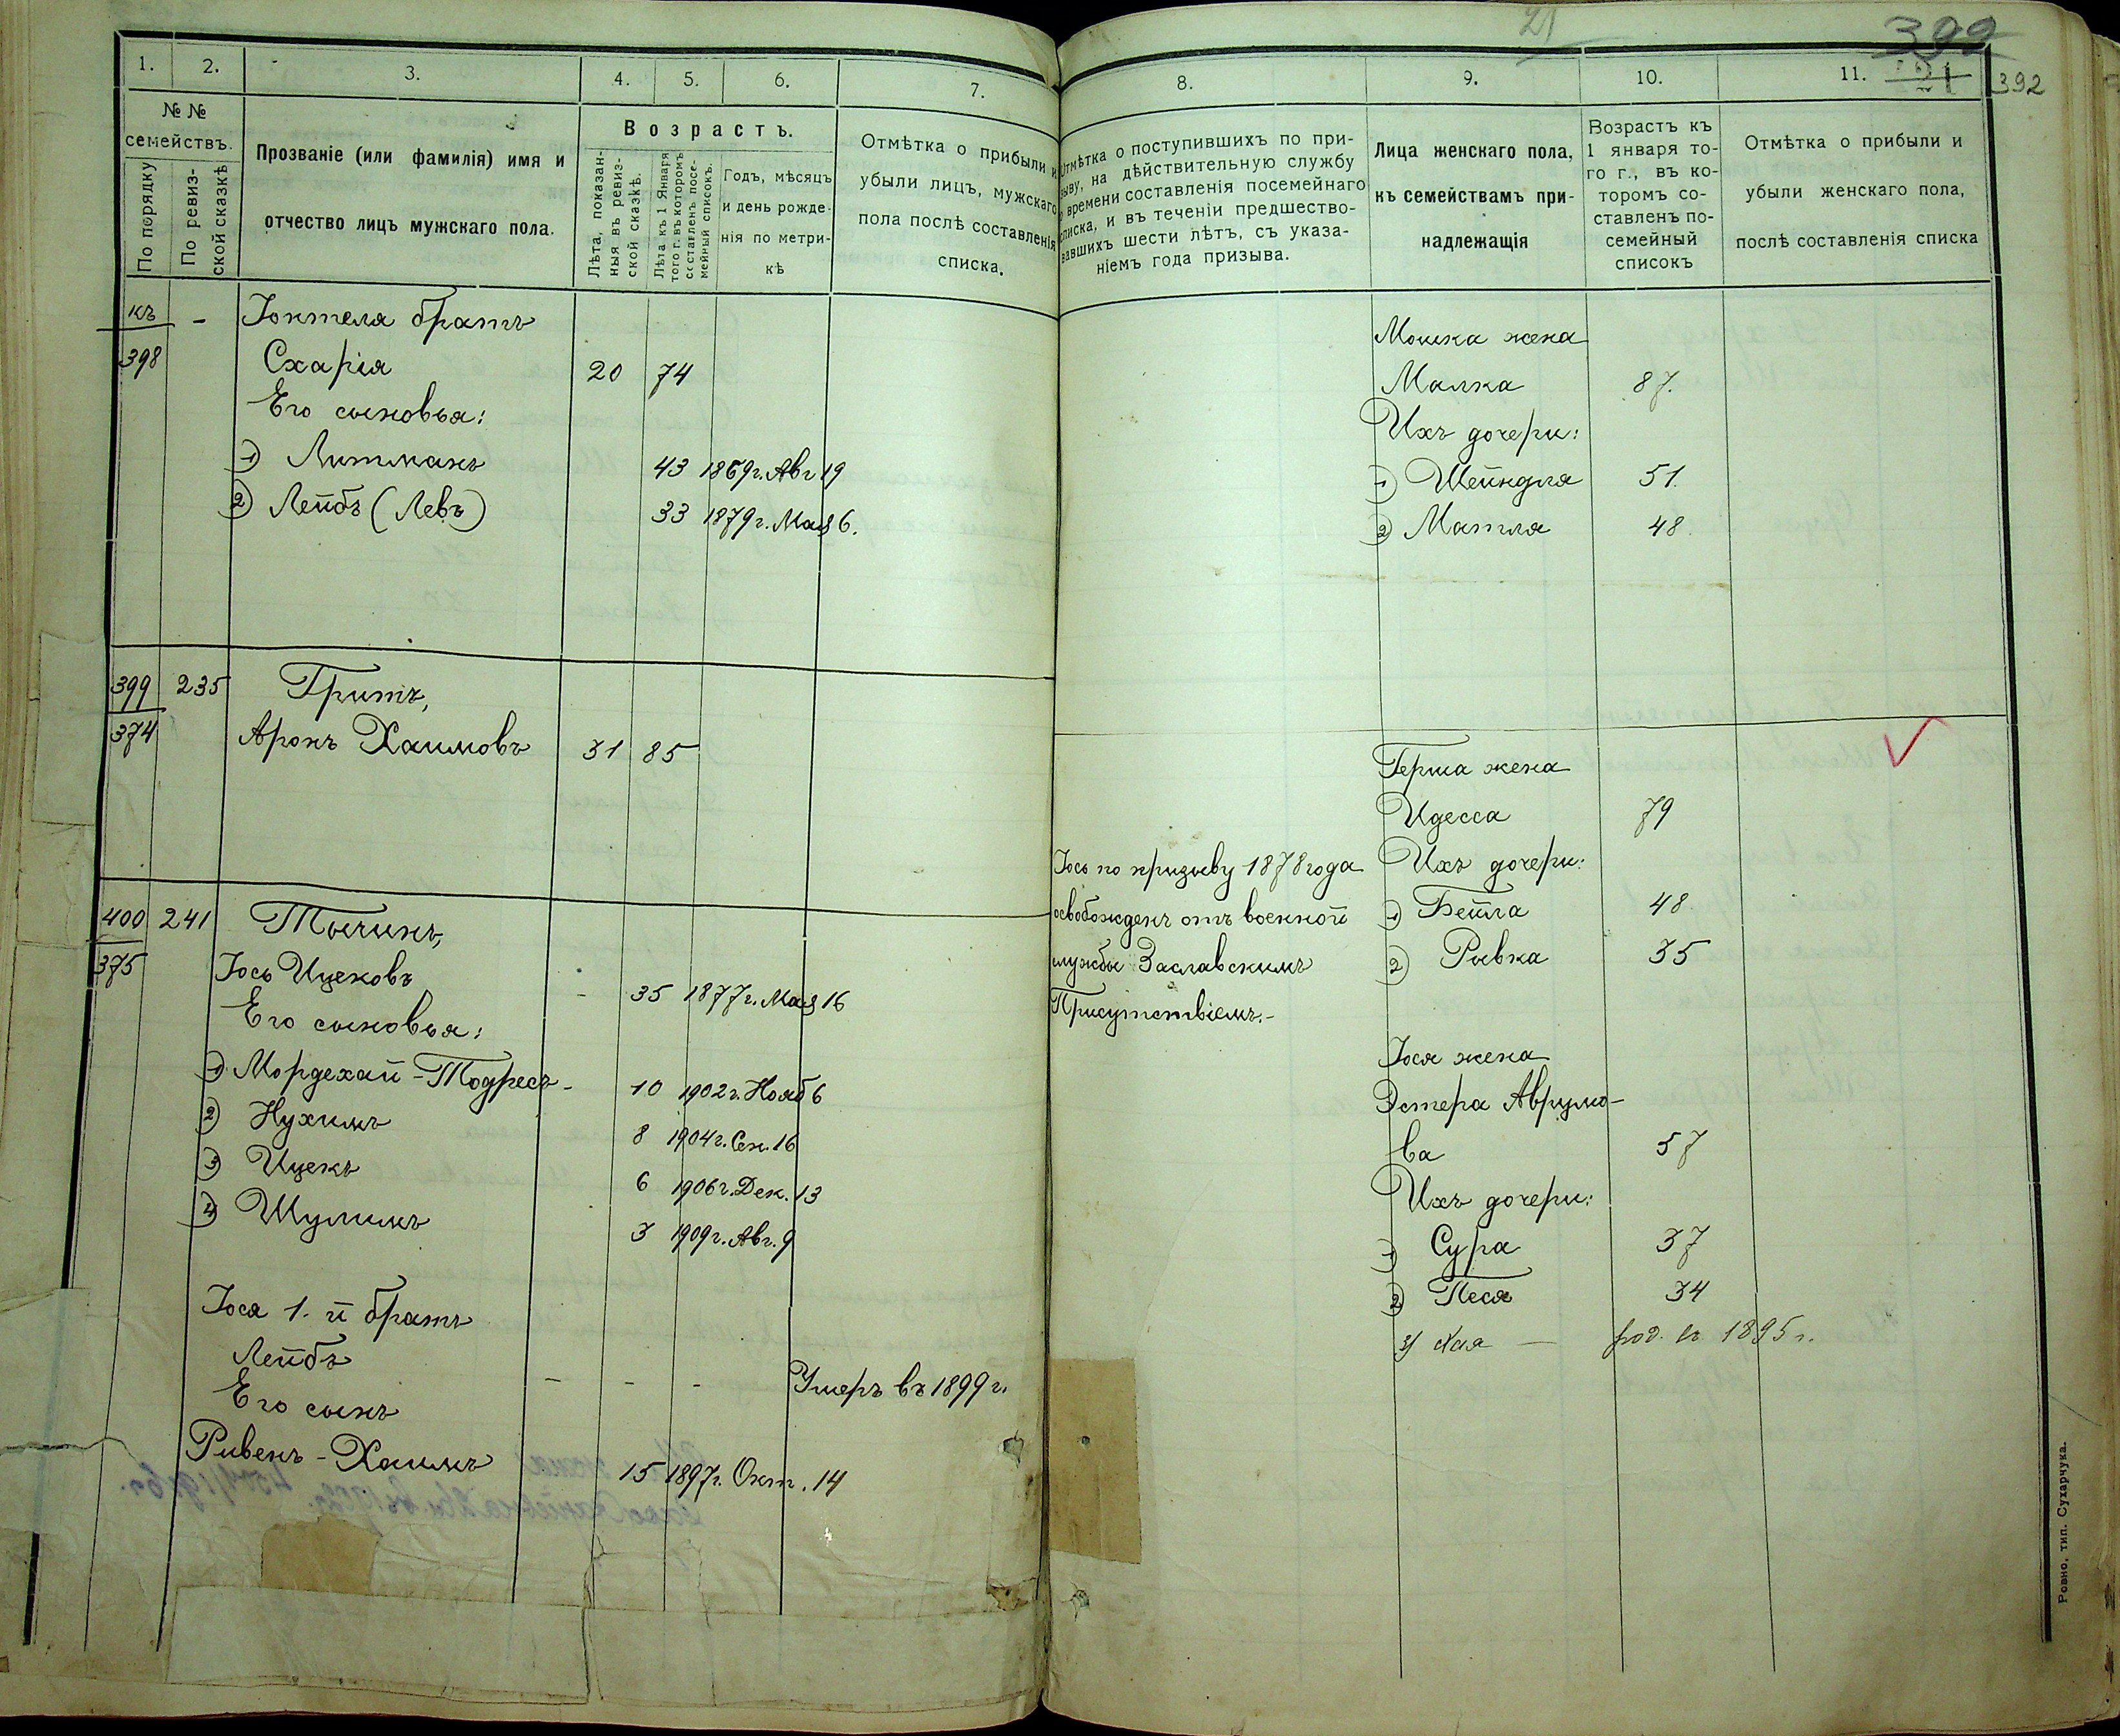 1.
2.
3.
4.
5.
6.
7.
№ №
семействъ.
По порядку
По ревиз-
ской сказкѣ
Прозваніе (или фамилія) имя и
отчество лицъ мужскаго пола.
Возрастъ.
Лѣта, показан-
ныя въ ревиз-
ской сказкѣ.
Лѣта къ 1 Января
того г. въ которомъ
составленъ посе-
мейный списокъ.
Годъ, мѣсяцъ
и день рожде-
нія по метри-
кѣ
Отмѣтка о прибыли и
убыли лицъ, мужскаго
пола послѣ составленія
списка.
къ - Іоктеля братъ
398 Схарія 20 74
Его сыновья:
1) Литманъ 43 1869г. Авг 19
2) Лейбъ (Левъ) 33 1879г. Мая 6.
399 235 Гритъ,
374 Аронъ Хаимовъ 31 85
400 241 Тычинъ,
375 Іось Ицековъ - 35 1877г. Мая 16
Его сыновья:
1) Мордехай-Тодресъ - 10 1902г. Нояб 6
2) Нухимъ 8 1904г. Сен. 16
3) Ицекъ 6 1906г. Дек. 13
4) Шулимъ 3 1909г. Авг. 9
Іося 1.й братъ
Лейбъ - - - Умеръ въ 1899 г.
Его сынъ
Рувенъ-Хаимъ 15 1897г. Окт. 14
21
399
21
392
8.
9.
10.
11.
Отмѣтка о поступившихъ по при-
зыву, на дѣйствительную службу
времени составленія посемейнаго
списка, и въ теченіи предшество-
вавшихъ шести лѣтъ, съ указа-
ніемъ года призыва.
Лица женскаго пола,
къ семействамъ при-
надлежащія
Возрастъ къ
1 января то-
го г., въ ко-
торомъ со-
ставленъ по-
семейный
списокъ
Отмѣтка о прибыли и
убыли женскаго пола,
послѣ составленія списка
Мошка жена
Малка 87.
Ихъ дочери:
1) Шейндля 51.
2) Матля 48.
Герша жена
Идесса 79
Іось по призыву 1878 года Ихъ дочери:
освобожденъ отъ военной 1) Бейла 48
службы Заславскимъ 2) Рывка 35
Присутствіемъ.-
Іося жена
Эстера Аврумо-
ва 57
Ихъ дочери:
1) Сура 37
2) Песя 34
3) Хая — род. въ 1895 г.
Ровно, тип. Сухарчука.